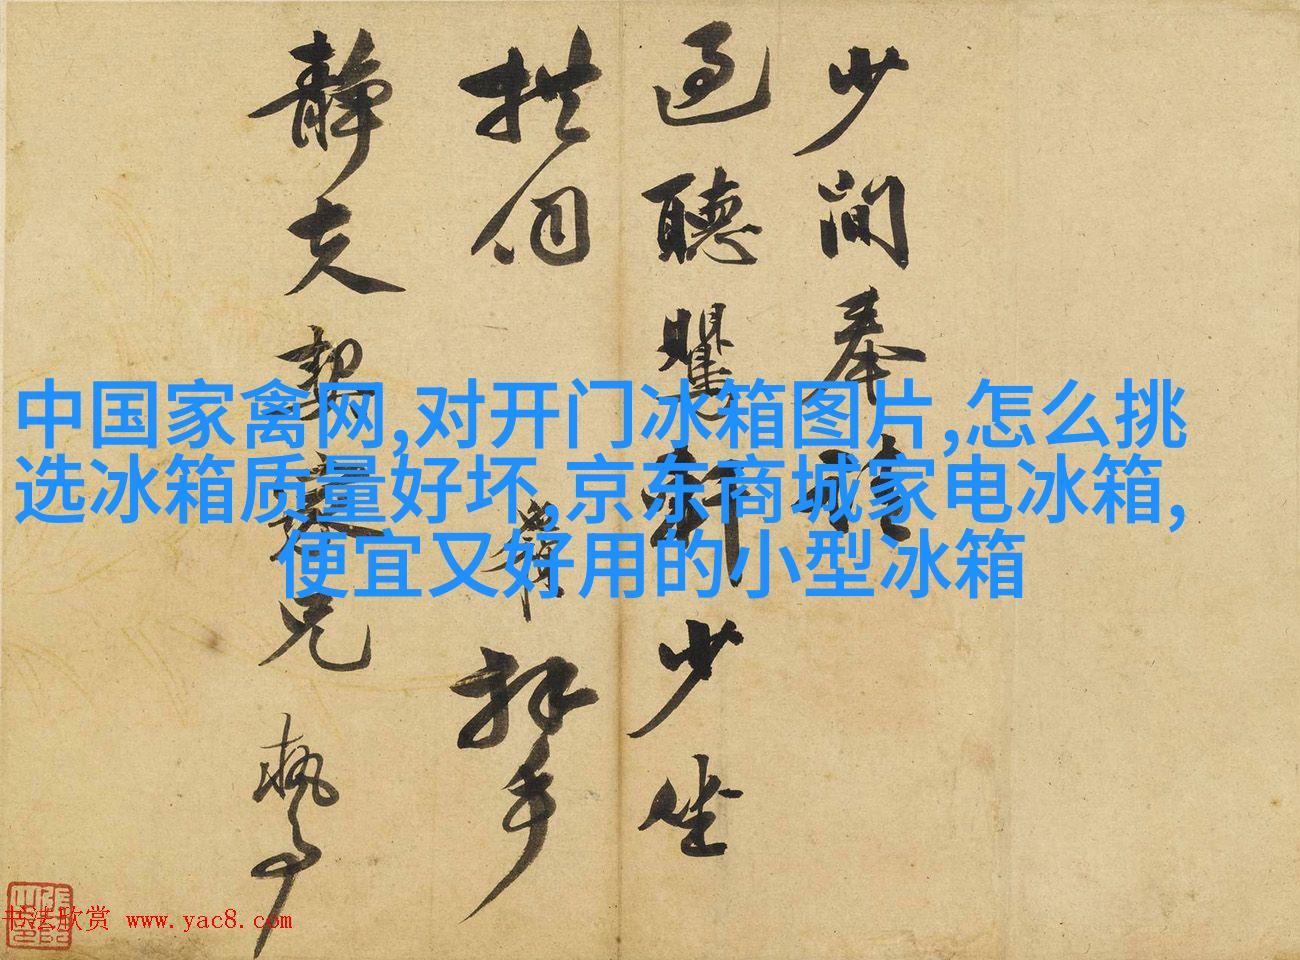 少间奉

过听
少坐
拱伺
拜手
静夫契
兄
执事
中国家禽网,对开门冰箱图片,怎么挑
选冰箱质量好坏,京东商城家电冰箱,
便宜又好用的小型冰箱
书法欣赏 www.yac8.com